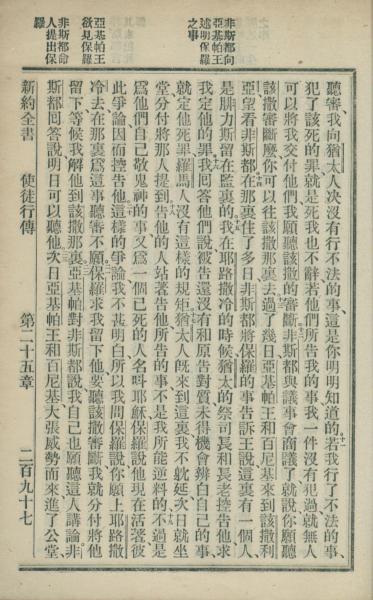 非斯都向
亞基帕王
述明保羅
之事
亞基帕王
欲見保羅
非斯都命
人提出保
羅
聽審我向猶太人決沒有行不法的事、這是你明明知道的若我行了不法的事、
犯了該死的罪就是死我也不辭若他們所告我的事我一件沒有犯過就無人
可以將我交付他們我願聽該撒的審斷非斯都與議事會商議了就說你願聽
該撒審斷麼你可以往該撒那裏去過了幾日亞基帕王和百尼基來到該撒利
亞望看非斯都在那裏住了多日非斯都將保羅的事告訴王說這裏有一個人、
是腓力斯留在監裏的我在耶路撒冷的時候猶太的祭司長和長老控告他求
我定他的罪我回答他們說被告還沒有和原告對質未得機會辨白自己的事、
就定他死罪羅馬人沒有這樣的規矩猶太人旣來到這裏我不躭延次日就坐
堂分付將那人提到告他的人站着告他所告的事不是我所能逆料的不過是
爲他們自己敬鬼神的事又爲一個已死的人名呌耶穌保羅說他現在活著彼
此爭論因而控告他這樣的爭論我不甚明白所以我問保羅說你願上耶路撒
冷去在那裏爲這事聽審不願保羅求我留下他要聽該撒審斷我就分付將他
留下等候我解他到該撒那裏亞基帕對非斯都說我自己也願聽這人講論非
斯都回答說明日可以聽他次日亞基帕王和百尼基大張威勢而來進了公堂、
新約全書 使徒行傳 第二十五章 二百九十七